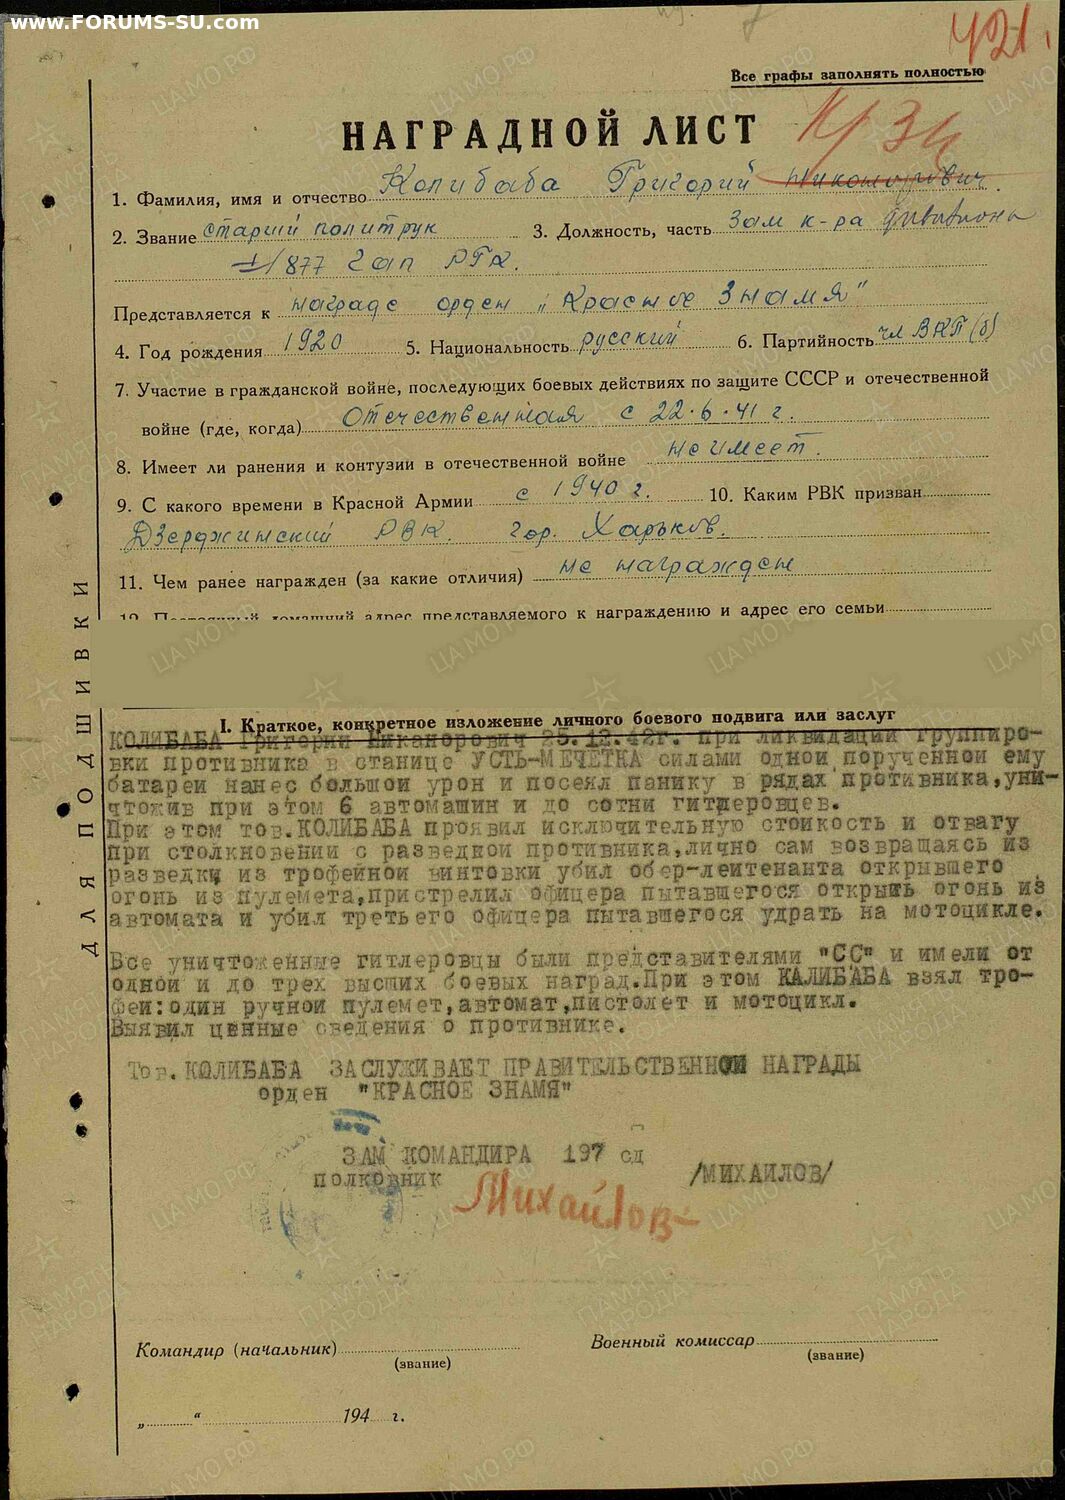 www.FORUMS-SU.com
421.
Все графы заполнять полностью
НАГРАДНОЙ ЛИСТ
Кр Зн
1. Фамилия, имя и отчество Колибаба Григорий Никонорович.
2. Звание старший политрук 3. Должность, часть Зам к-ра дивизиона
1/877 гап РГК.
Представляется к награде орден „Красное Знамя"
4. Год рождения 1920 5. Национальность русский 6. Партийность чл ВКП(б)
7. Участие в гражданской войне, последующих боевых действиях по защите СССР и отечественной
войне (где, когда) Отечественная с 22.6.41 г.
8. Имеет ли ранения и контузии в отечественной войне не имеет.
9. С какого времени в Красной Армии с 1940 г. 10. Каким РВК призван
Дзержинский РВК. гор. Харьков.
11. Чем ранее награжден (за какие отличия) не награжден
12. Постоянный домашний адрес представляемого к награждению и адрес его семьи
I. Краткое, конкретное изложение личного боевого подвига или заслуг
КОЛИБАБА Григорий Никанорович 25.12.42г. при ликвидации группиро-
вки противника в станице УСТЬ-МЕЧЕТКА силами одной порученной ему
батареи нанес большой урон и посеял панику в рядах противника,уни-
чтожив при этом 6 автомашин и до сотни гитлеровцев.
При этом тов.КОЛИБАБА проявил исключительную стойкость и отвагу
при столкновении с разведкой противника,лично сам возвращаясь из
разведки из трофейной винтовки убил обер-лейтенанта открывшего
огонь из пулемета,пристрелил офицера пытавшегося открыть огонь из
автомата и убил третьего офицера пытавшегося удрать на мотоцикле.
Все уничтоженные гитлеровцы были представителями "СС" и имели от
одной и до трех высших боевых наград.При этом КАЛИБАБА взял тро-
феи:один ручной пулемет,автомат,пистолет и мотоцикл.
Выявил ценные сведения о противнике.
Тов.КОЛИБАБА ЗАСЛУЖИВАЕТ ПРАВИТЕЛЬСТВЕННОЙ НАГРАДЫ
орден "КРАСНОЕ ЗНАМЯ"
ЗАМ КОМАНДИРА 197 сд
полковник /МИХАЙЛОВ/
Михайлов
Командир (начальник)
(звание)
Военный комиссар
(звание)
„ “ 194 г.
ДЛЯ ПОДШИВКИ